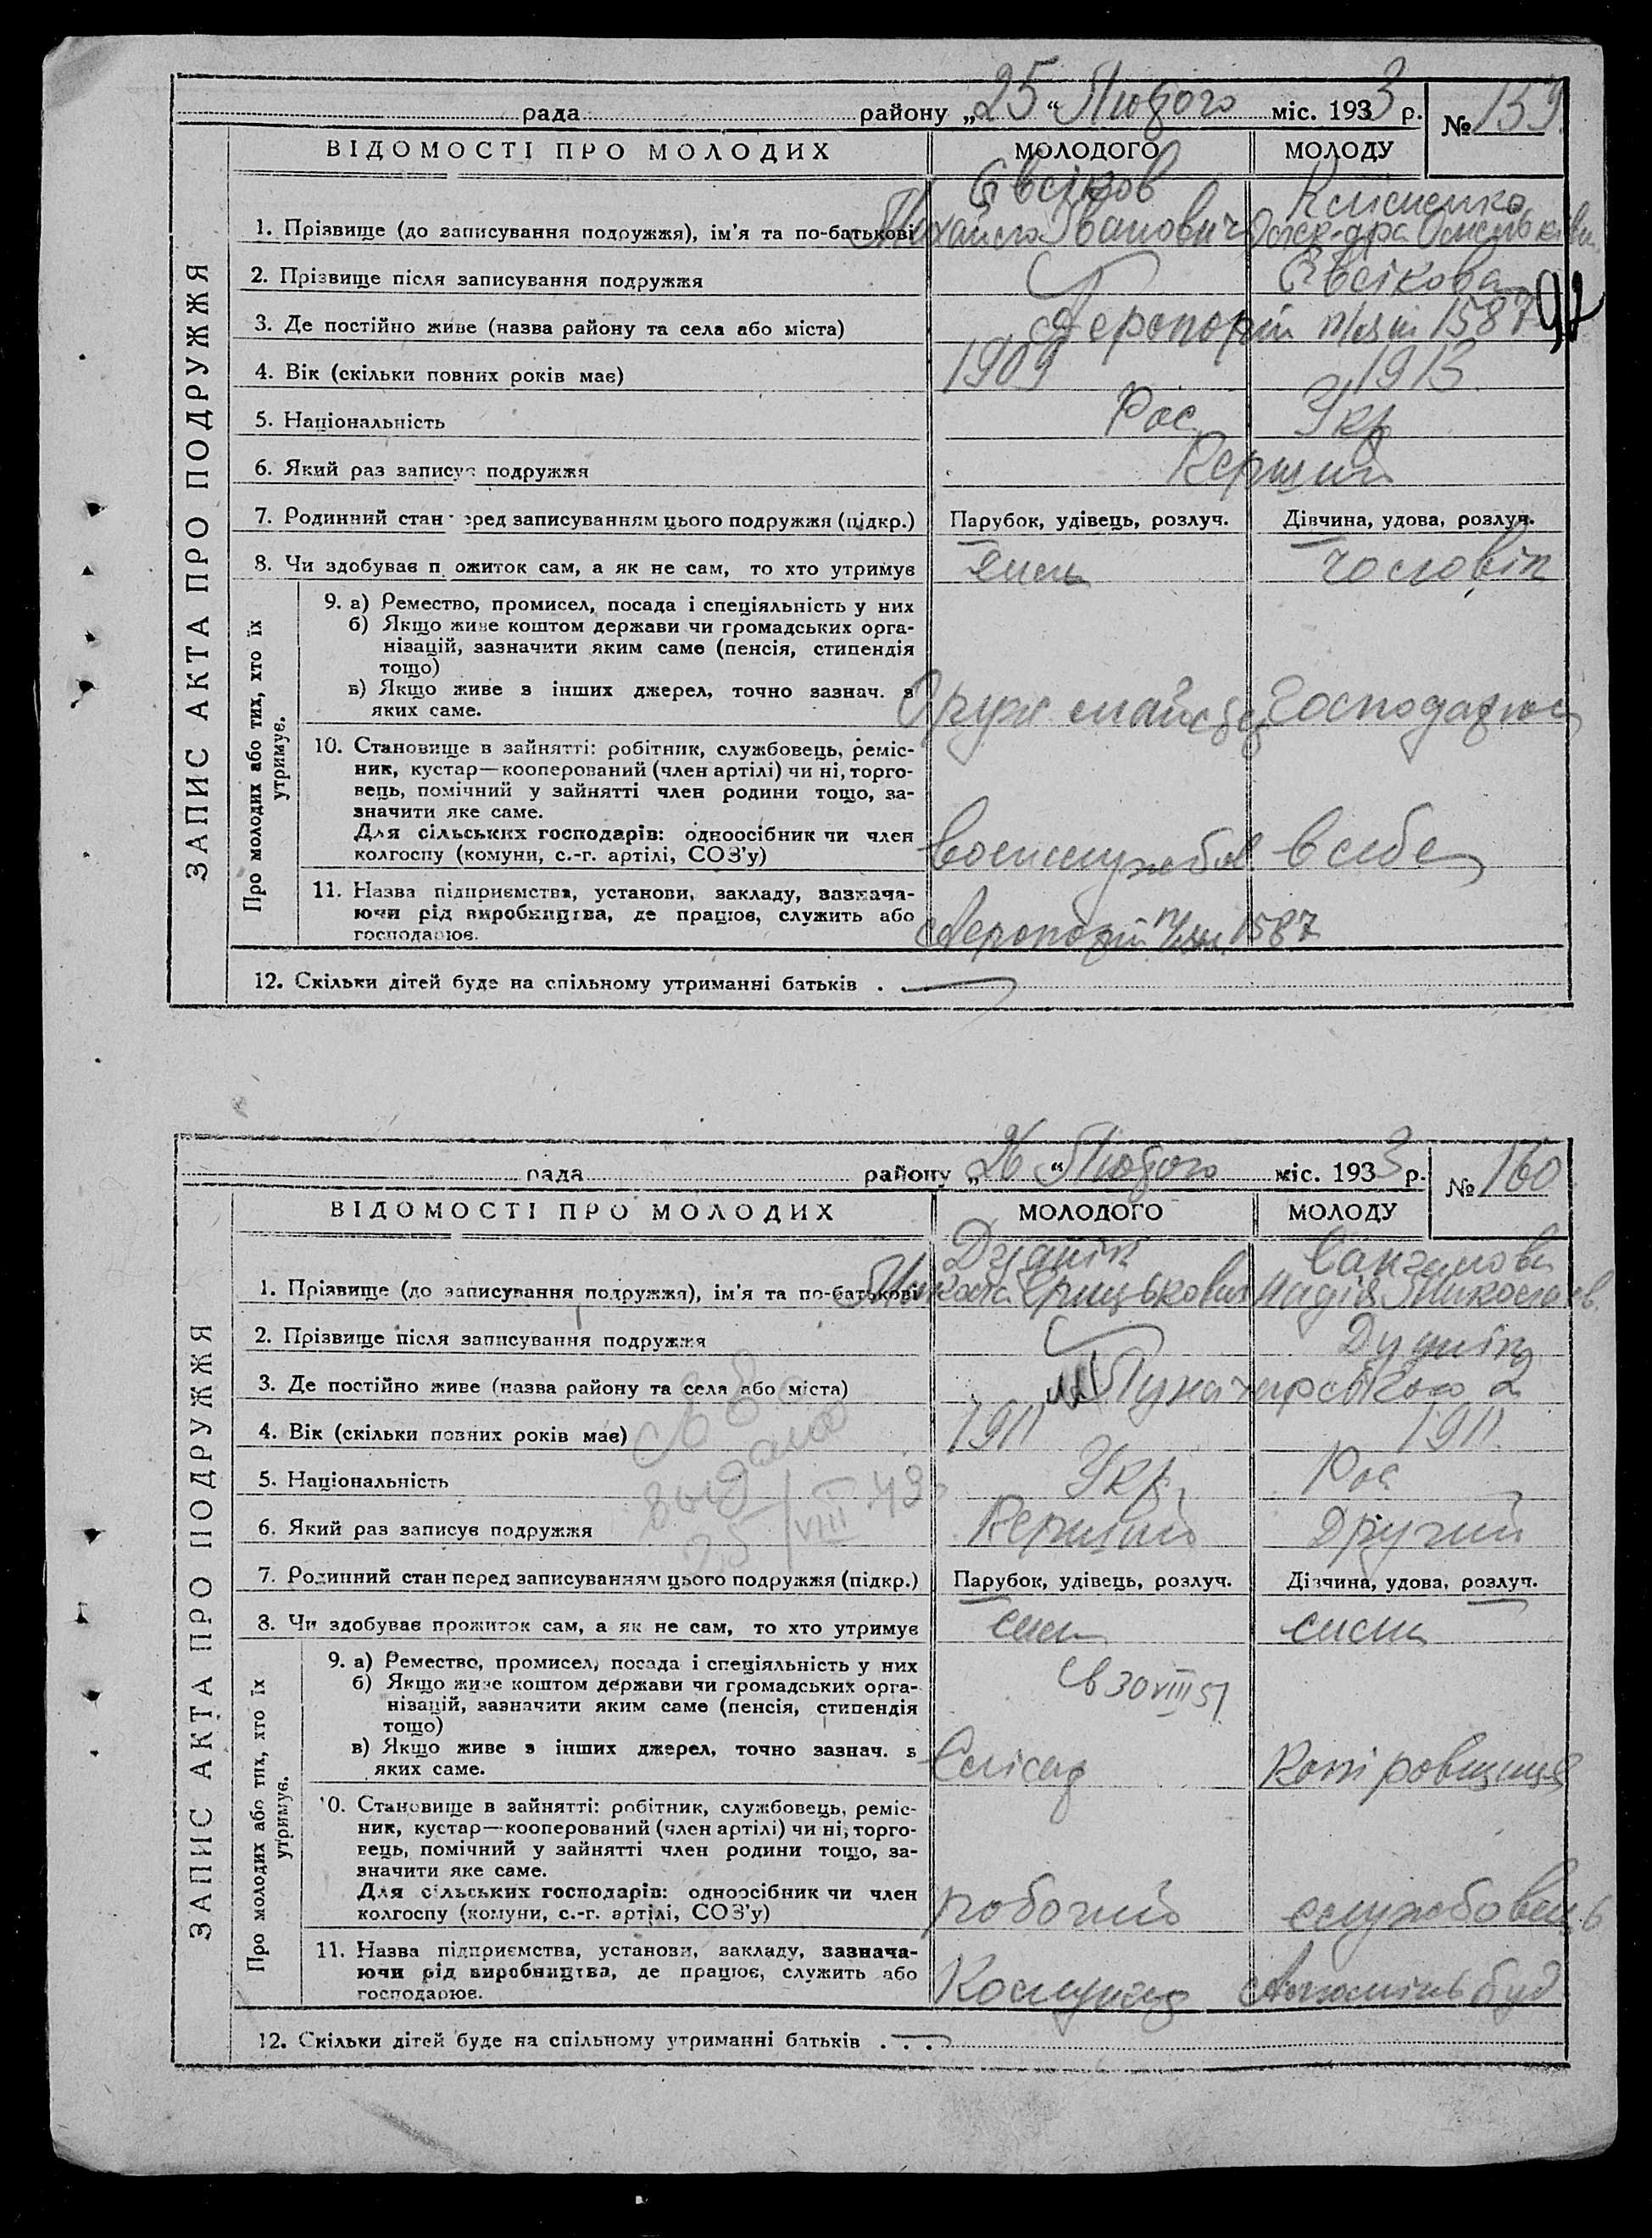 рада району „25“ Лютого міс. 1933 р. № 159
ВІДОМОСТІ ПРО МОЛОДИХ МОЛОДОГО МОЛОДУ
ЗАПИС АКТА ПРО ПОДРУЖЖЯ
Євсіков Клименко
1. Прізвище (до записування подружжя), ім'я та по-батькові Михайло Іванович
2. Прізвище після записування подружжя Євсікова
3. Де постійно живе (назва району та села або міста) Аеропорт 1587
4. Вік (скільки повних років має) 1909 1913
5. Національність Рос. Укр
6. Який раз записує подружжя Перший
7. Родинний стан перед записуванням цього подружжя (підкр.) Парубок, удівець, розлуч. Дівчина, удова, розлуч.
8. Чи здобуває прожиток сам, а як не сам, то хто утримує чоловік
Про молодих або тих, хто їх утримує.
9. а) Ремество, промисел, посада і спеціяльність у них
б) Якщо живе коштом держави чи громадських орга-
нізацій, зазначити яким саме (пенсія, стипендія
тощо)
в) Якщо живе з інших джерел, точно зазнач. з
яких саме.
10. Становище в зайнятті: робітник, службовець, реміс-
ник, кустар—кооперований (член артілі) чи ні, торго-
вець, помічний у зайнятті член родини тощо, за-
значити яке саме.
Для сільських господарів: одноосібник чи член
колгоспу (комуни, с.-г. артілі, СОЗ'у) военслужбов в себе
11. Назва підприємства, установи, закладу, зазнача-
ючи рід виробництва, де працює, служить або
господарює. Аеропорт 1587
12. Скільки дітей буде на спільному утриманні батьків .
рада району „26“ Лютого міс. 1933 р. № 160
ВІДОМОСТІ ПРО МОЛОДИХ МОЛОДОГО МОЛОДУ
ЗАПИС АКТА ПРО ПОДРУЖЖЯ
1. Прізвище (до записування подружжя), ім'я та по-батькові Микола Грицькович Надія Миколаєв.
2. Прізвище після записування подружжя
3. Де постійно живе (назва району та села або міста) Луначарського 2
4. Вік (скільки повних років має) 1911 1911
5. Національність Укр. Рос
6. Який раз записує подружжя Перший Другий
25/VIII 43
7. Родинний стан перед записуванням цього подружжя (підкр.) Парубок, удівець, розлуч. Дівчина, удова, розлуч.
8. Чи здобуває прожиток сам, а як не сам, то хто утримує сам сама
Про молодих або тих, хто їх утримує.
9. а) Ремество, промисел, посада і спеціяльність у них
б) Якщо живе коштом держави чи громадських орга-
нізацій, зазначити яким саме (пенсія, стипендія
тощо)
св 30 VIII 51
в) Якщо живе з інших джерел, точно зазнач. з
яких саме. Слісар Копіровщиця
10. Становище в зайнятті: робітник, службовець, реміс-
ник, кустар—кооперований (член артілі) чи ні, торго-
вець, помічний у зайнятті член родини тощо, за-
значити яке саме.
Для сільських господарів: одноосібник чи член
колгоспу (комуни, с.-г. артілі, СОЗ'у) робочий службовець
11. Назва підприємства, установи, закладу, зазнача-
ючи рід виробництва, де працює, служить або
господарює. Комунар Алюмінь буд
12. Скільки дітей буде на спільному утриманні батьків . . .